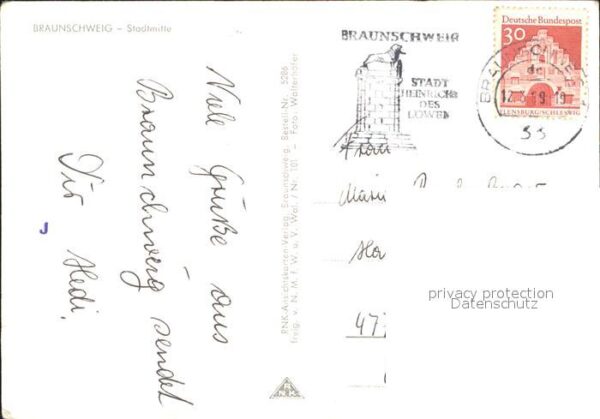 BRAUNSCHWEIG – Stadtmitte
Viele Grüße aus
Braunschweig sendet
Dir Hedi.
PNK-Ansichtskarten-Verlag, Braunschweig, Bestell-Nr. 5286
freig. v. N. M. F. W. u. V. (Wol. / Nr. 101 — Foto: Walterhöfer
PNK
BRAUNSCHWEIG
STADT
HEINRICHS
DES
LÖWEN
Deutsche Bundespost
30
FLENSBURG/SCHLESWIG
33
Frau
47
privacy protection
Datenschutz